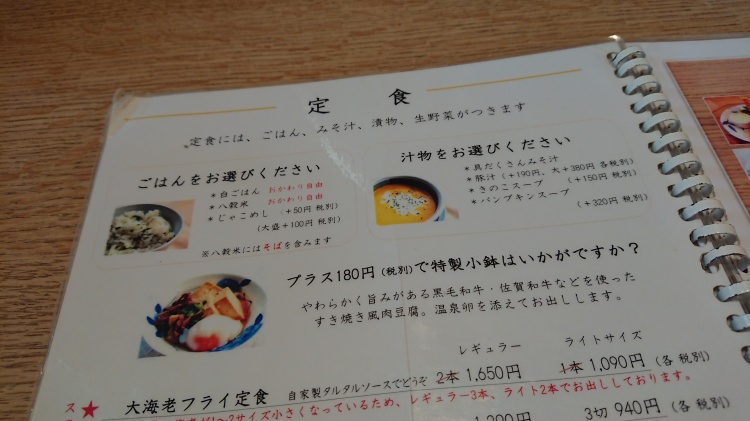 定 食
定食には、ごはん、みそ汁、漬物、生野菜がつきます
ごはんをお選びください
＊白ごはん おかわり自由
＊八穀米 おかわり自由
＊じゃこめし （+50円 税別）
（大盛+100円 税別）
※八穀米にはそばを含みます
汁物をお選びください
＊具だくさんみそ汁
＊豚汁（+190円、大+380円 各税別）
＊きのこスープ （+150円 税別）
＊パンプキンスープ
（+320円 税別）
プラス180円（税別）で特製小鉢はいかがですか？
やわらかく旨みがある黒毛和牛・佐賀和牛などを使った
すき焼き風肉豆腐。温泉卵を添えてお出しします。
レギュラー ライトサイズ
★ 大海老フライ定食 自家製タルタルソースでどうぞ 2本 1,650円 1本 1,090円（各 税別）
1〜2サイズ小さくなっているため、レギュラー3本、ライト2本でお出ししております。
3切 940円（各 税別）